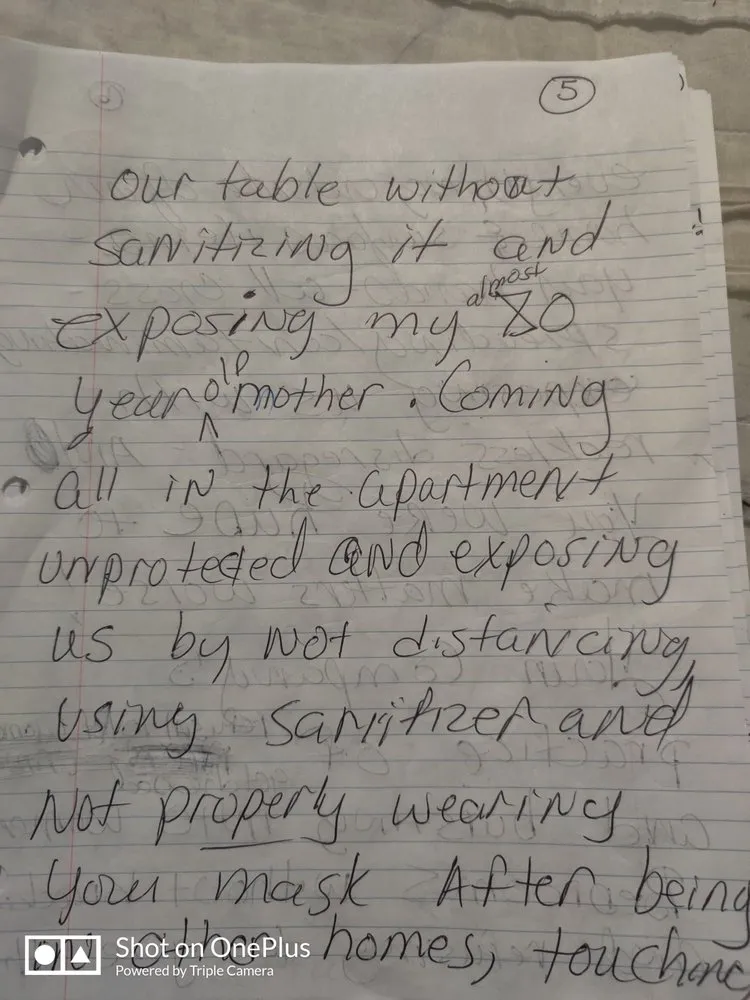 5
our table without
sanitizing it and
exposing my almost 80
year old mother. Coming
all in the apartment
unprotected and exposing
us by not distancing,
using sanitizer and
not properly wearing
your mask After being
in other homes, touching
Shot on OnePlus
Powered by Triple Camera